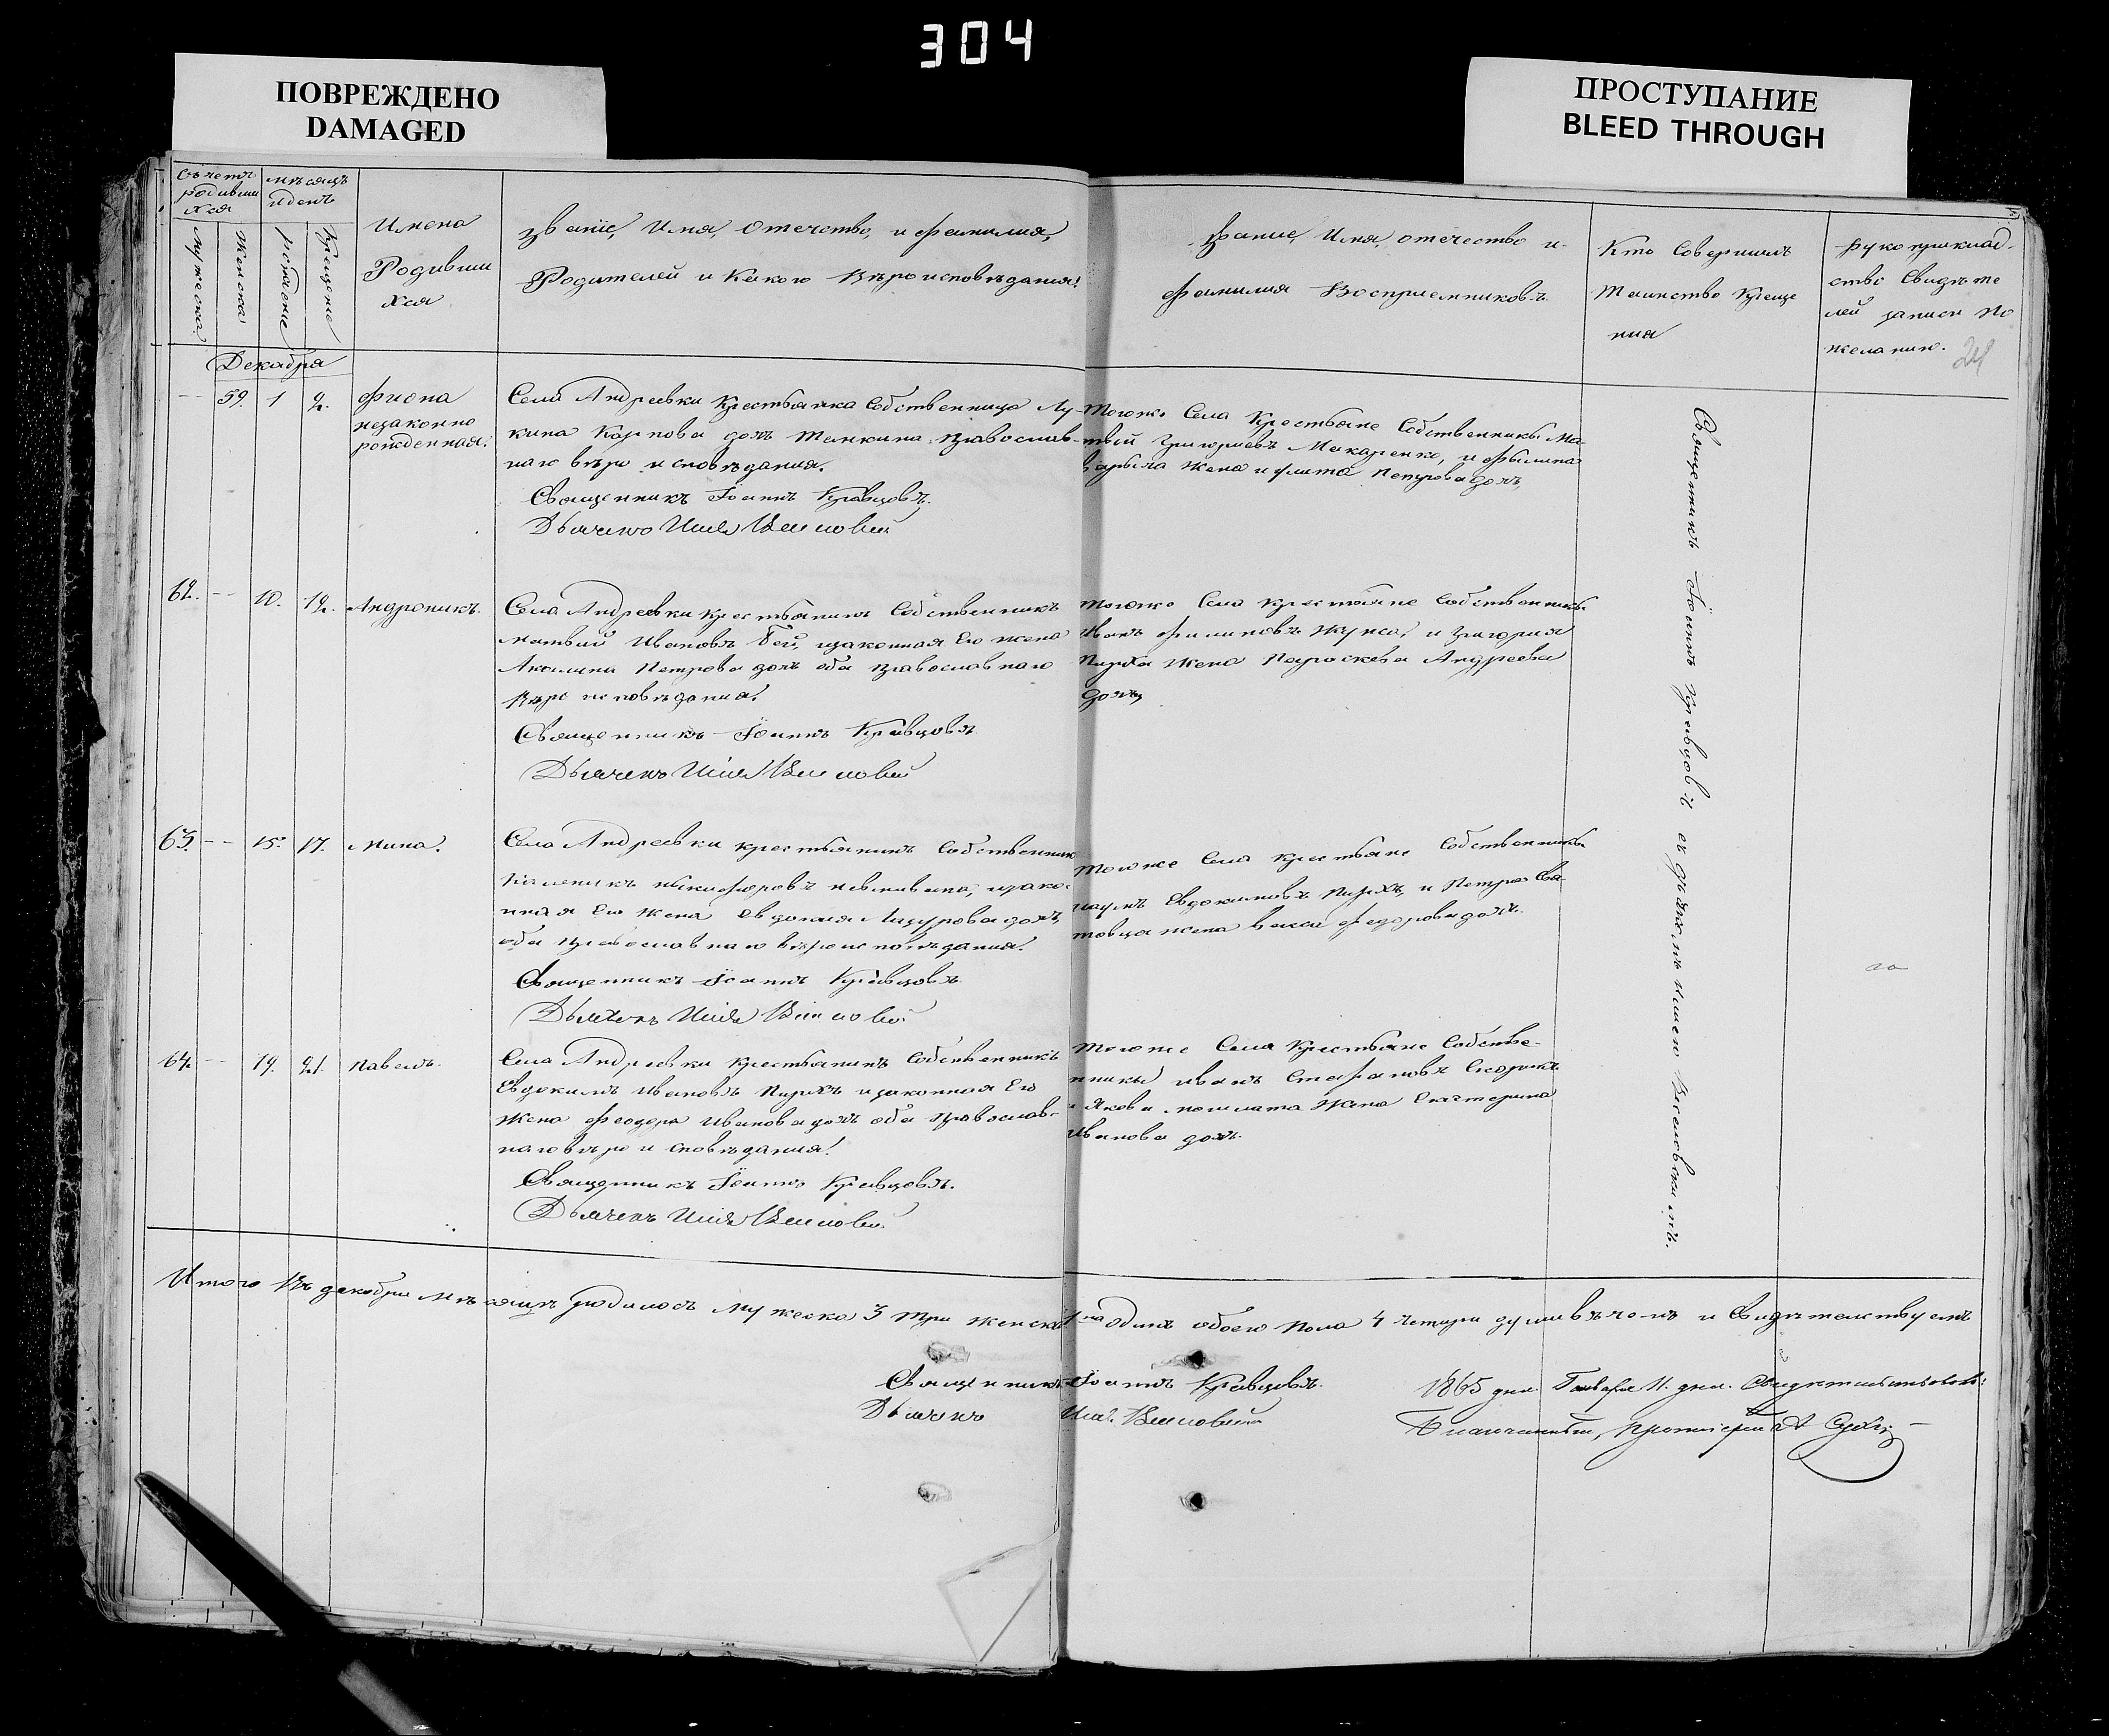 304
ПОВРЕЖДЕНО
DAMAGED
ПРОСТУПАНИЕ
BLEED THROUGH
Счетъ
родивши
хся
мѣсяцъ
и день
Мужеска
Женска
рожденіе
Крещеніе
Имена
Родивши
хся
Званіе, Имя, Отчество, и фамилия,
Родителей и Какого Вѣроисповѣдания!
Звание, Имя, отечество и
фамилия Восприемниковъ
Кто Совершилъ
Таинство Креще
ния
Рукоприклад-
ство Свидѣте
лей записи по
желанию.
24
Декабря
59. 1 2.
фиона
незаконно
рожденная.
Села Андреевки Крестьянка Собственница Лу-
кина Карпова дочь православ-
наго вѣро исповѣдания.
Священникъ Іоаннъ Кравцовъ.
Дьячекъ
Тогоже Села Крестьяне Собственники Ма-
твей Григориевъ Макаренко, и
жена Петрова дочь,
62. 10. 12. Андроникъ.
Села Андреевки Крестьянинъ Собственникъ
матвий Ивановъ законная Его жена
Акилина Петрова дочь оба православнаго
Вѣро исповѣдания!
Священникъ Іоаннъ Кравцовъ
Дьячекъ
тогоже Села Крестьяне Собственники
Иванъ филиповъ и Григория
Пирха жена Параскева Андреева
дочь,
63. 15. 17. Мина.
Села Андреевки крестьянинъ Собственник
Каленикъ никифоровъ зако-
нная Его жена Евдокия дочь,
оба православнаго вѣроисповѣдания!
Священникъ Іоаннъ Кравцовъ
Дьячекъ
тогоже Села Крестьяне Собственники
наумъ Евдокимовъ Пирхъ, и Петра Сва-
товца жена васса федорова дочь.
64. 19. 21. Павелъ.
Села Андреевки Крестьянинъ Собственникъ
Евдокимъ Ивановъ Пирхъ и законная Его
Жена Феодора Иванова дочь оба православ-
наго вѣро исповѣдания!
Священникъ Іоаннъ Кравцовъ.
Дьячекъ
Тогоже Села Крестьяне Собстве-
нники иванъ Стефановъ Скорикъ
и Якова жена Екатерина
Иванова дочь.
Священникъ Іоаннъ Кравцовъ съ дьячкомъ
Итого Въ декабри мѣсяцѣ родилось Мужеска 3 три женска 1 на одна обоего пола 4 четыри души в чомъ и Свидѣтельствуемъ
Священникъ Іоаннъ Кравцовъ.
Дьячекъ
1865 Генваря 11 дня. Свидетельствовалъ:
Благочинный, Протоіерей